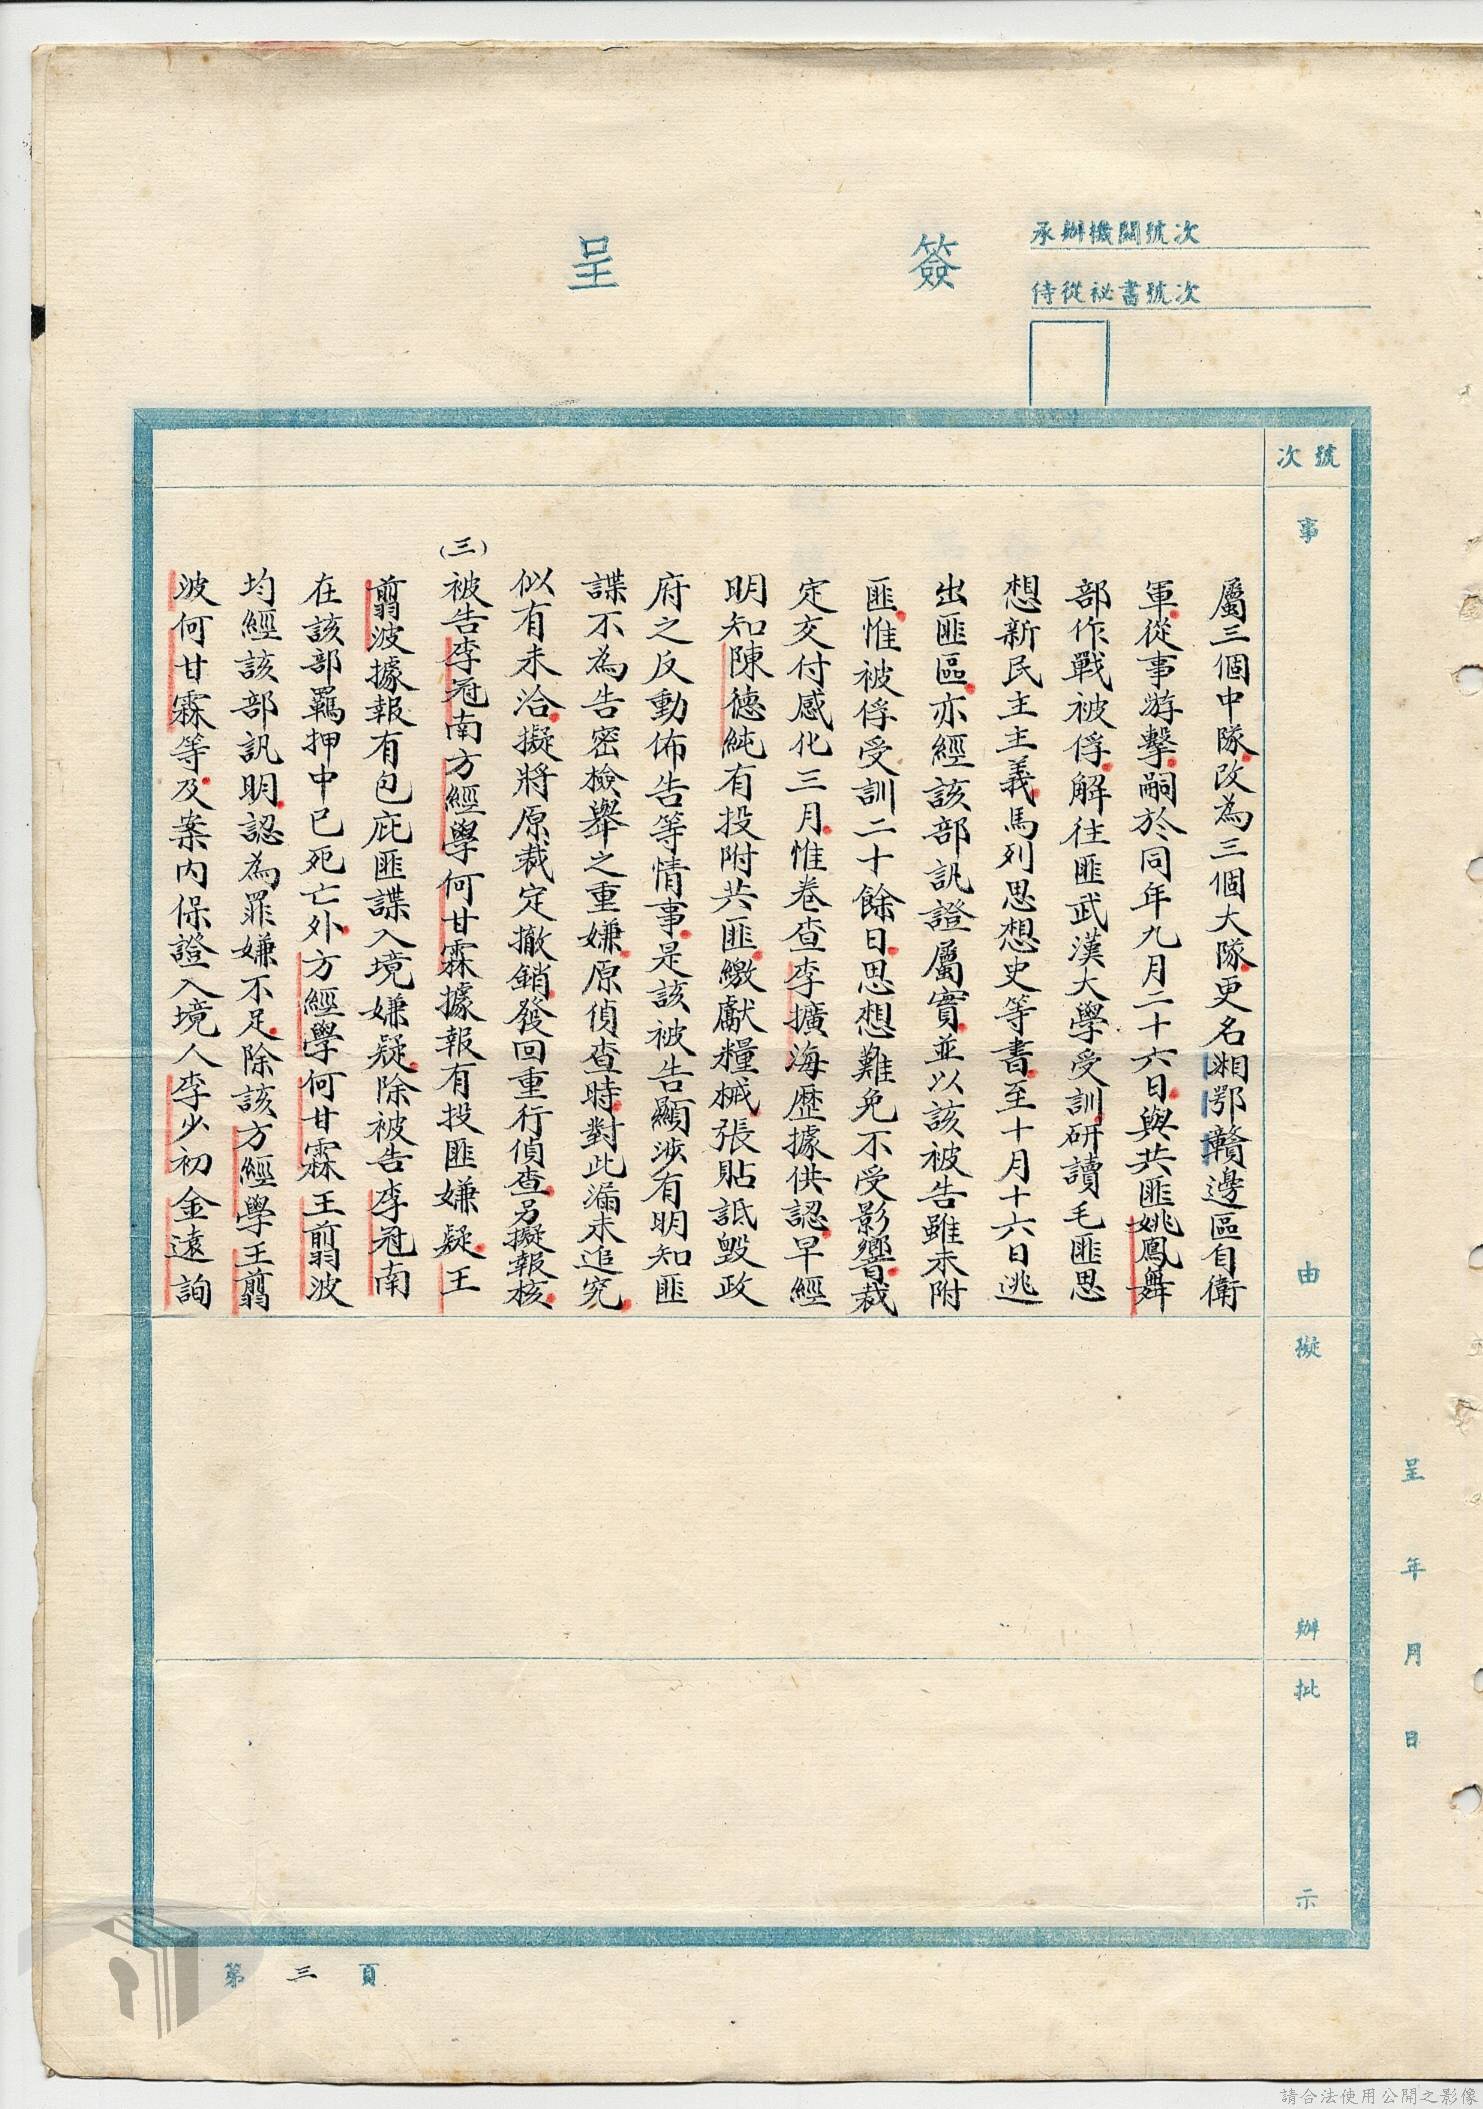 簽呈
承辦機關號次
侍從祕書號次
號次
事由
擬辦
批示
屬三個中隊改為三個大隊更名湘鄂贛邊區自衛
軍從事游擊嗣於同年九月二十六日與共匪姚鳳舞
部作戰被俘解往匪武漢大學受訓研讀毛匪思
想新民主主義馬列思想史等書至十月十六日逃
出匪區亦經該部訊證屬實並以該被告雖未附
匪惟被俘受訓二十餘日思想難免不受影響裁
定交付感化三月惟卷查李擴海歷據供認早經
明知陳德純有投附共匪繳獻糧械張貼詆毀政
府之反動佈告等情事是該被告顯涉有明知匪
諜不為告密檢舉之重嫌原偵查時對此漏未追究
似有未洽擬將原裁定撤銷發回重行偵查另擬報核
(三)被告李冠南方經學何甘霖據報有投匪嫌疑王
翦波據報有包庇匪諜入境嫌疑除被告李冠南
在該部羈押中已死亡外方經學何甘霖王翦波
均經該部訊明認為罪嫌不足除該方經學王翦
波何甘霖等及案內保證入境人李少初金遠詢
呈年月日
第三頁
請合法使用公開之影像